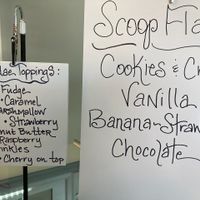 lae Toppings:
Fudge
• Caramel
arshmallow
• Strawberry
anut Butter
Raspberry
inkles
• Cherry on top
Scoop Fla
Cookies & Cr
Vanilla
Banana-Straw
Chocolate